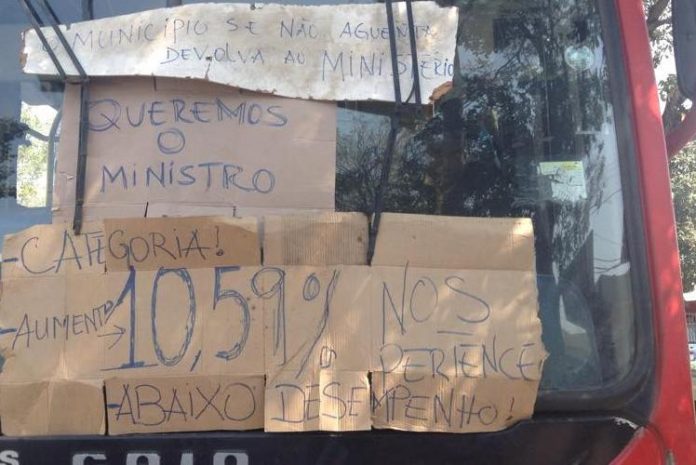 O MUNICÍPIO SE NÃO AGUENTA
DEVOLVA AO MINISTÉRIO
QUEREMOS
O
MINISTRO
-CATEGORIA!
-AUMENTO→10,59% NOS
PERTENCE
-ABAIXO DESEMPENHO!